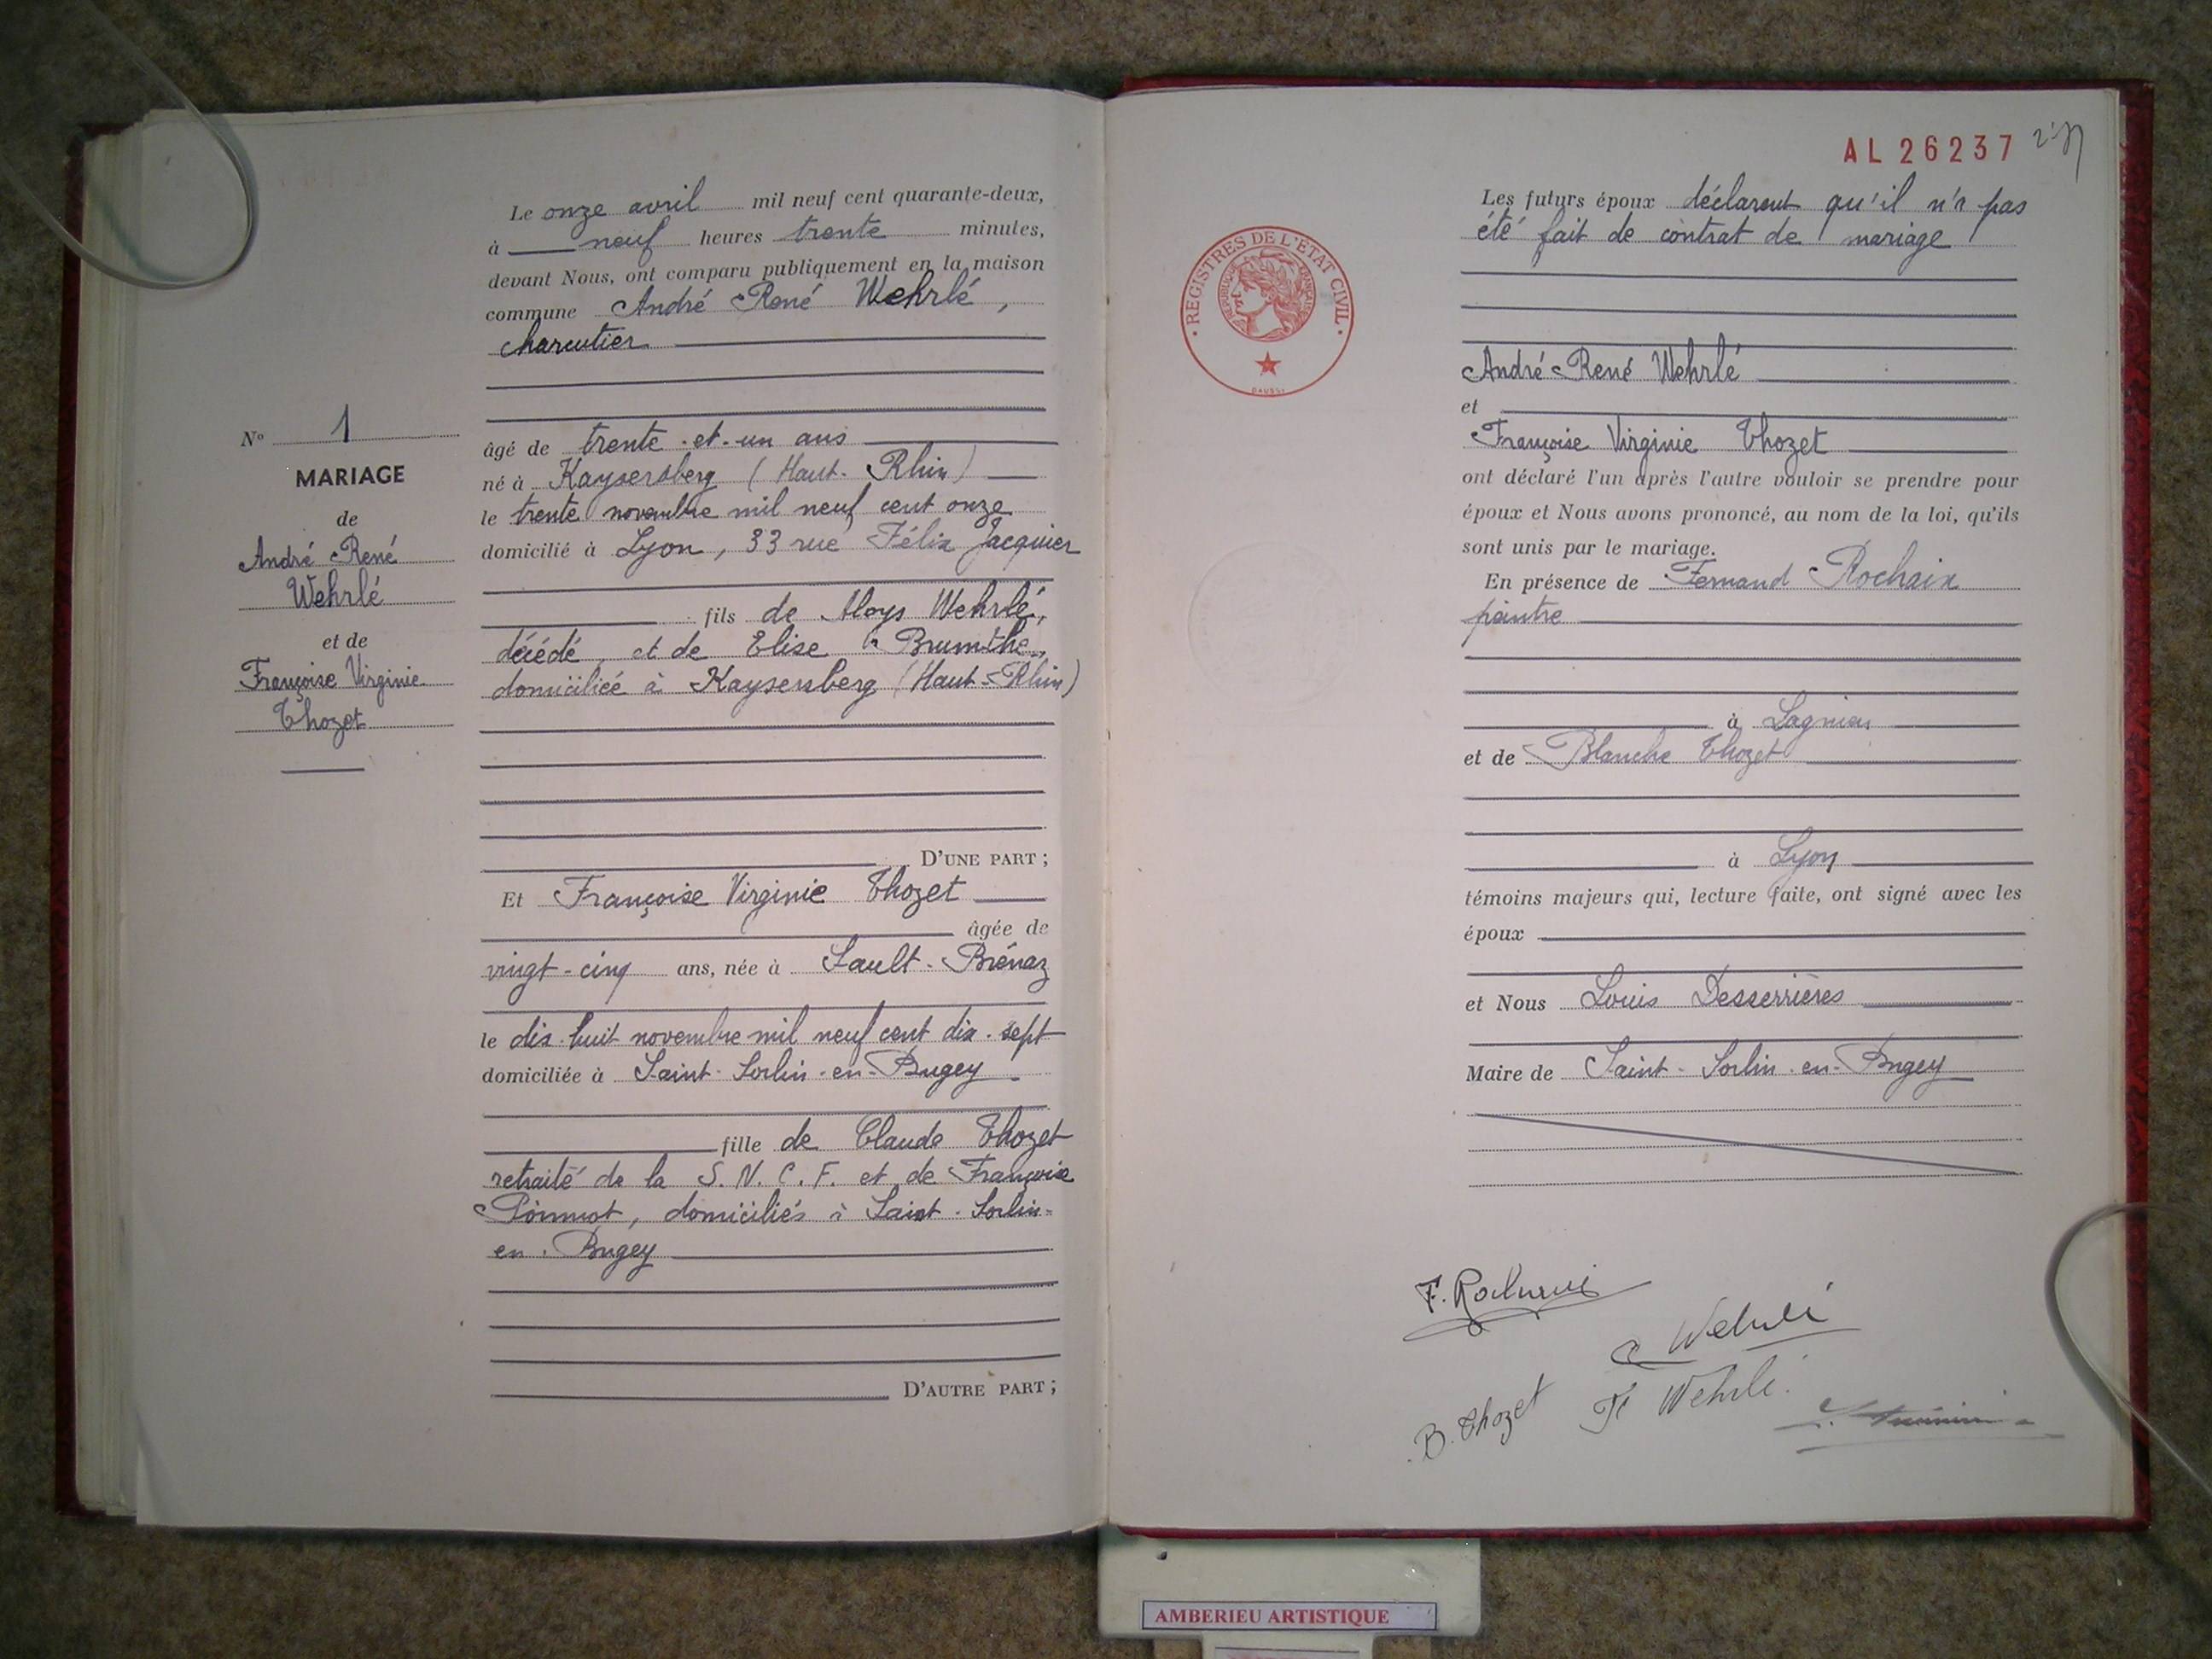 Le onze avril mil neuf cent quarante-deux,
à neuf heures trente minutes,
devant Nous, ont comparu publiquement en la maison
commune André René Wehrlé,
charcutier
N° 1
MARIAGE
de
André René
Wehrlé
et de
Françoise Virginie
Thozet
âgé de trente-et-un ans
né à Kaysersberg (Haut-Rhin)
le trente novembre mil neuf cent onze
domicilié à Lyon, 33 rue Félix Jacquier
fils de Aloys Wehrlé,
décédé, et de Elise
domiciliée à Kaysersberg (Haut-Rhin)
D'UNE PART ;
Et Françoise Virginie Thozet
âgée de
vingt-cinq ans, née à Sault-Brénaz
le dix-huit novembre mil neuf cent dix-sept
domiciliée à Saint-Sorlin-en-Bugey
fille de Claude Thozet
retraité de la S.N.C.F. et de Françoise
domiciliés à Saint-Sorlin-
en-Bugey
D'AUTRE PART ;
AL 26237
REGISTRES DE L'ÉTAT CIVIL
RÉPUBLIQUE FRANÇAISE
Les futurs époux déclarent qu'il n'a pas
été fait de contrat de mariage
André René Wehrlé
et
Françoise Virginie Thozet
ont déclaré l'un après l'autre vouloir se prendre pour
époux et Nous avons prononcé, au nom de la loi, qu'ils
sont unis par le mariage.
En présence de Fernand Rochaix
peintre
à Lagnieu
et de Blanche Thozet
à Lyon
témoins majeurs qui, lecture faite, ont signé avec les
époux
et Nous Louis Desserrières
Maire de Saint-Sorlin-en-Bugey
F. Rochaix
Wehrlé
B. Thozet
F Wehrlé
AMBERIEU ARTISTIQUE